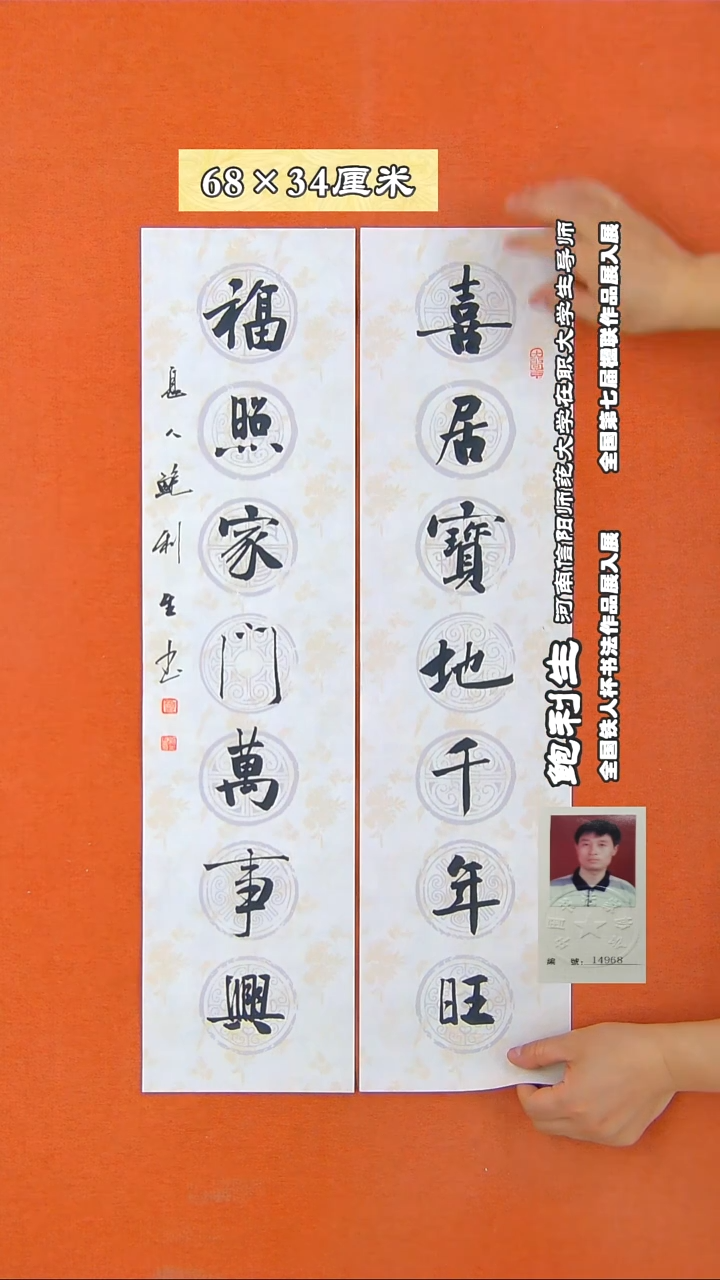 68×34厘米
喜居寶地千年旺
福照家門萬事興
息人鲍利生书
鲍利生 河南信阳师范大学在职大学生导师
全国铁人杯书法作品展入展 全国第七届楹联作品展入展
編 號：14968